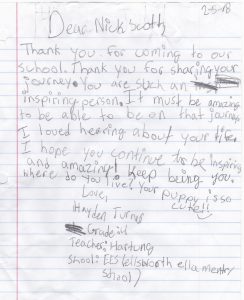 2-5-18
Dear Nick Scott
Thank you for coming to our
school. Thank you for sharing your
journey. You are such an
inspiring person. It must be amazing
to be able to be on that journey
I loved hearing about your life.
I hope you continue to be inspiring
and amazing! Keep being you.
where do you live? your puppy is so
Love, cute!!
Hayden Turner
Grade:4
Teacher: Hartung
School: EES (ellsworth ella mentry
school)